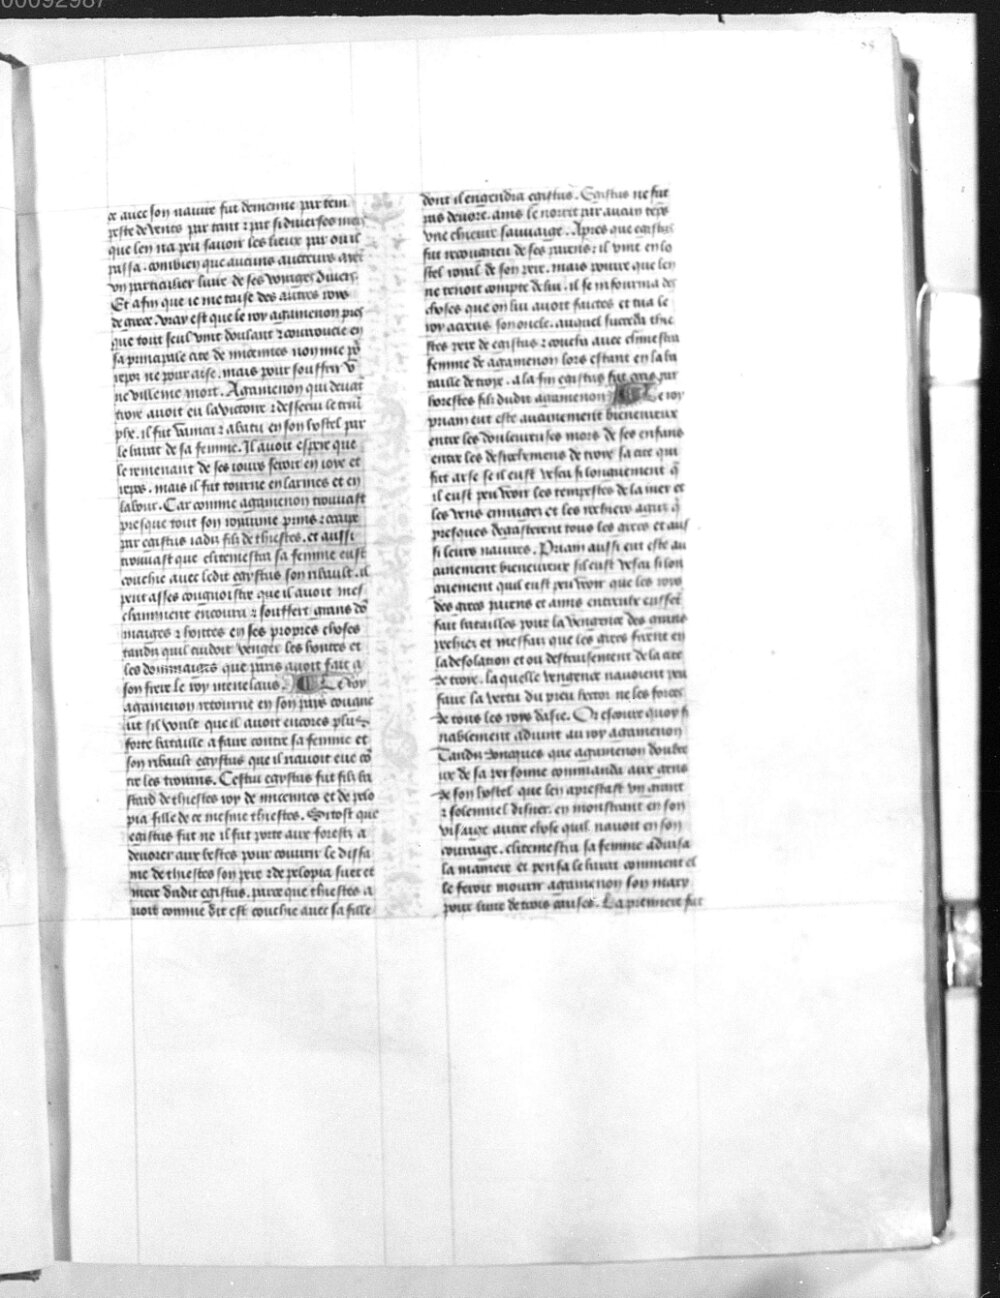 00092987
ce auec son nauire fut demenne par tem
peste de vents par tant ⁊ par si diuerses mers
que len na peu sauoir les lieux par ou il
passa. combien que aucuns aucteurs aient
vn particulier liure de ses voiages diuers
Et afin que ie me taise des autres roys
de grece. vray est que le roy agamenon pres
que tout seul vint doulant ⁊ courroucie en
sa principale cite de micennes non mie po
repos ne pour aise. mais pour souffrir v
ne villeine mort. Agamenon qui deuant
troye auoit eu la victoire ⁊ desserui le trium
phe. il fut vaincu ⁊ abatu en son hostel par
le barat de sa femme. Il auoit espere que
le remenant de ses iours seroit en ioye et
repos. mais il fut tourne en larmes et en
labour. Car comme agamenon trouuast
presque tout son royaume prins ⁊ occupe
par egistus iadis filz de thiestes. et aussi
trouuast que clitemestra sa femme eust
couchie auec ledit egystus son ribault. il
peut asses congnoistre que il auoit mes
chamment encouru ⁊ souffert grans do
maiges ⁊ hontes en ses propres choses
tandis quil cuidoit venger les hontes et
les dommaiges que paris auoit fait a
son frere le roy menelaus. Le roy
agamenon retourne en son pays congne
ut sil voult que il auoit encores plus
forte bataille a faire contre sa femme et
son ribault egystus que il nauoit eue co
tre les troyans. Cestui egystus fut filz ba
stard de thiestes roy de micennes et de pelo
pia fille de ce mesme thiestes. Sitost que
egistus fut ne il fut porte aux forestz a
deuorer aux bestes pour couurir le diffa
me de thiestes son pere ⁊ de pelopia suer et
mere dudit egistus. parce que thiestes a
uoit comme dit est couchie auec sa fille
dont il engendra egistus. Egistus ne fut
pas deuore. ains le norrit par aucun teps
vne chieure sauuaige. Apres que egistus
fut recongneu de ses parens: il vint en lo
stel royal de son pere. mais pource que len
ne tenoit compte de lui. il se informa des
choses que on lui auoit faictes et tua le
roy acreus son oncle. auquel succeda thie
stes pere de egistus ⁊ coucha auec climestra
femme de agamenon lors estant en la ba
taille de troye. a la fin egistus fut occis par
horestes filz dudit agamenon Le roy
priam eut este aucunement bieneureux
entre les douleureuses mors de ses enfans
entre les destruiemens de troye sa cite qui
fut arse se il eust vescu si longuement q̃
il eust peu veoir les tempestes de la mer et
les vens ennuiger et les rochiers agus q̃
presques degasterent tous les grecs et aus
si leurs nauires. Priam aussi eut este au
cunement bieneureux sil eust vescu si lon
guement quil eust peu veoir que les roys
des grecs parens et amis entreulx eussent
fait batailles pour la vengence des grans
pechiez et meffais que les grecs firent en
la desolation et ou destruisement de la cite
de troye. la quelle vengence nauoient peu
faire la vertu du preu hector ne les forces
de tous les roys dasie. Or escoute quoy fi
nablement aduint au roy agamenon
Tandis doncques que agamenon doubte
ux de sa personne commanda aux gens
de son hostel que len aprestast vn grant
⁊ solennel disner. en monstrant en son
visaige autre chose quil nauoit en son
couraige. clitemestra sa femme aduisa
la maniere et pensa le barat comment el
le feroit mourir agamenon son mary
pour lune de trois causes. La premiere fut